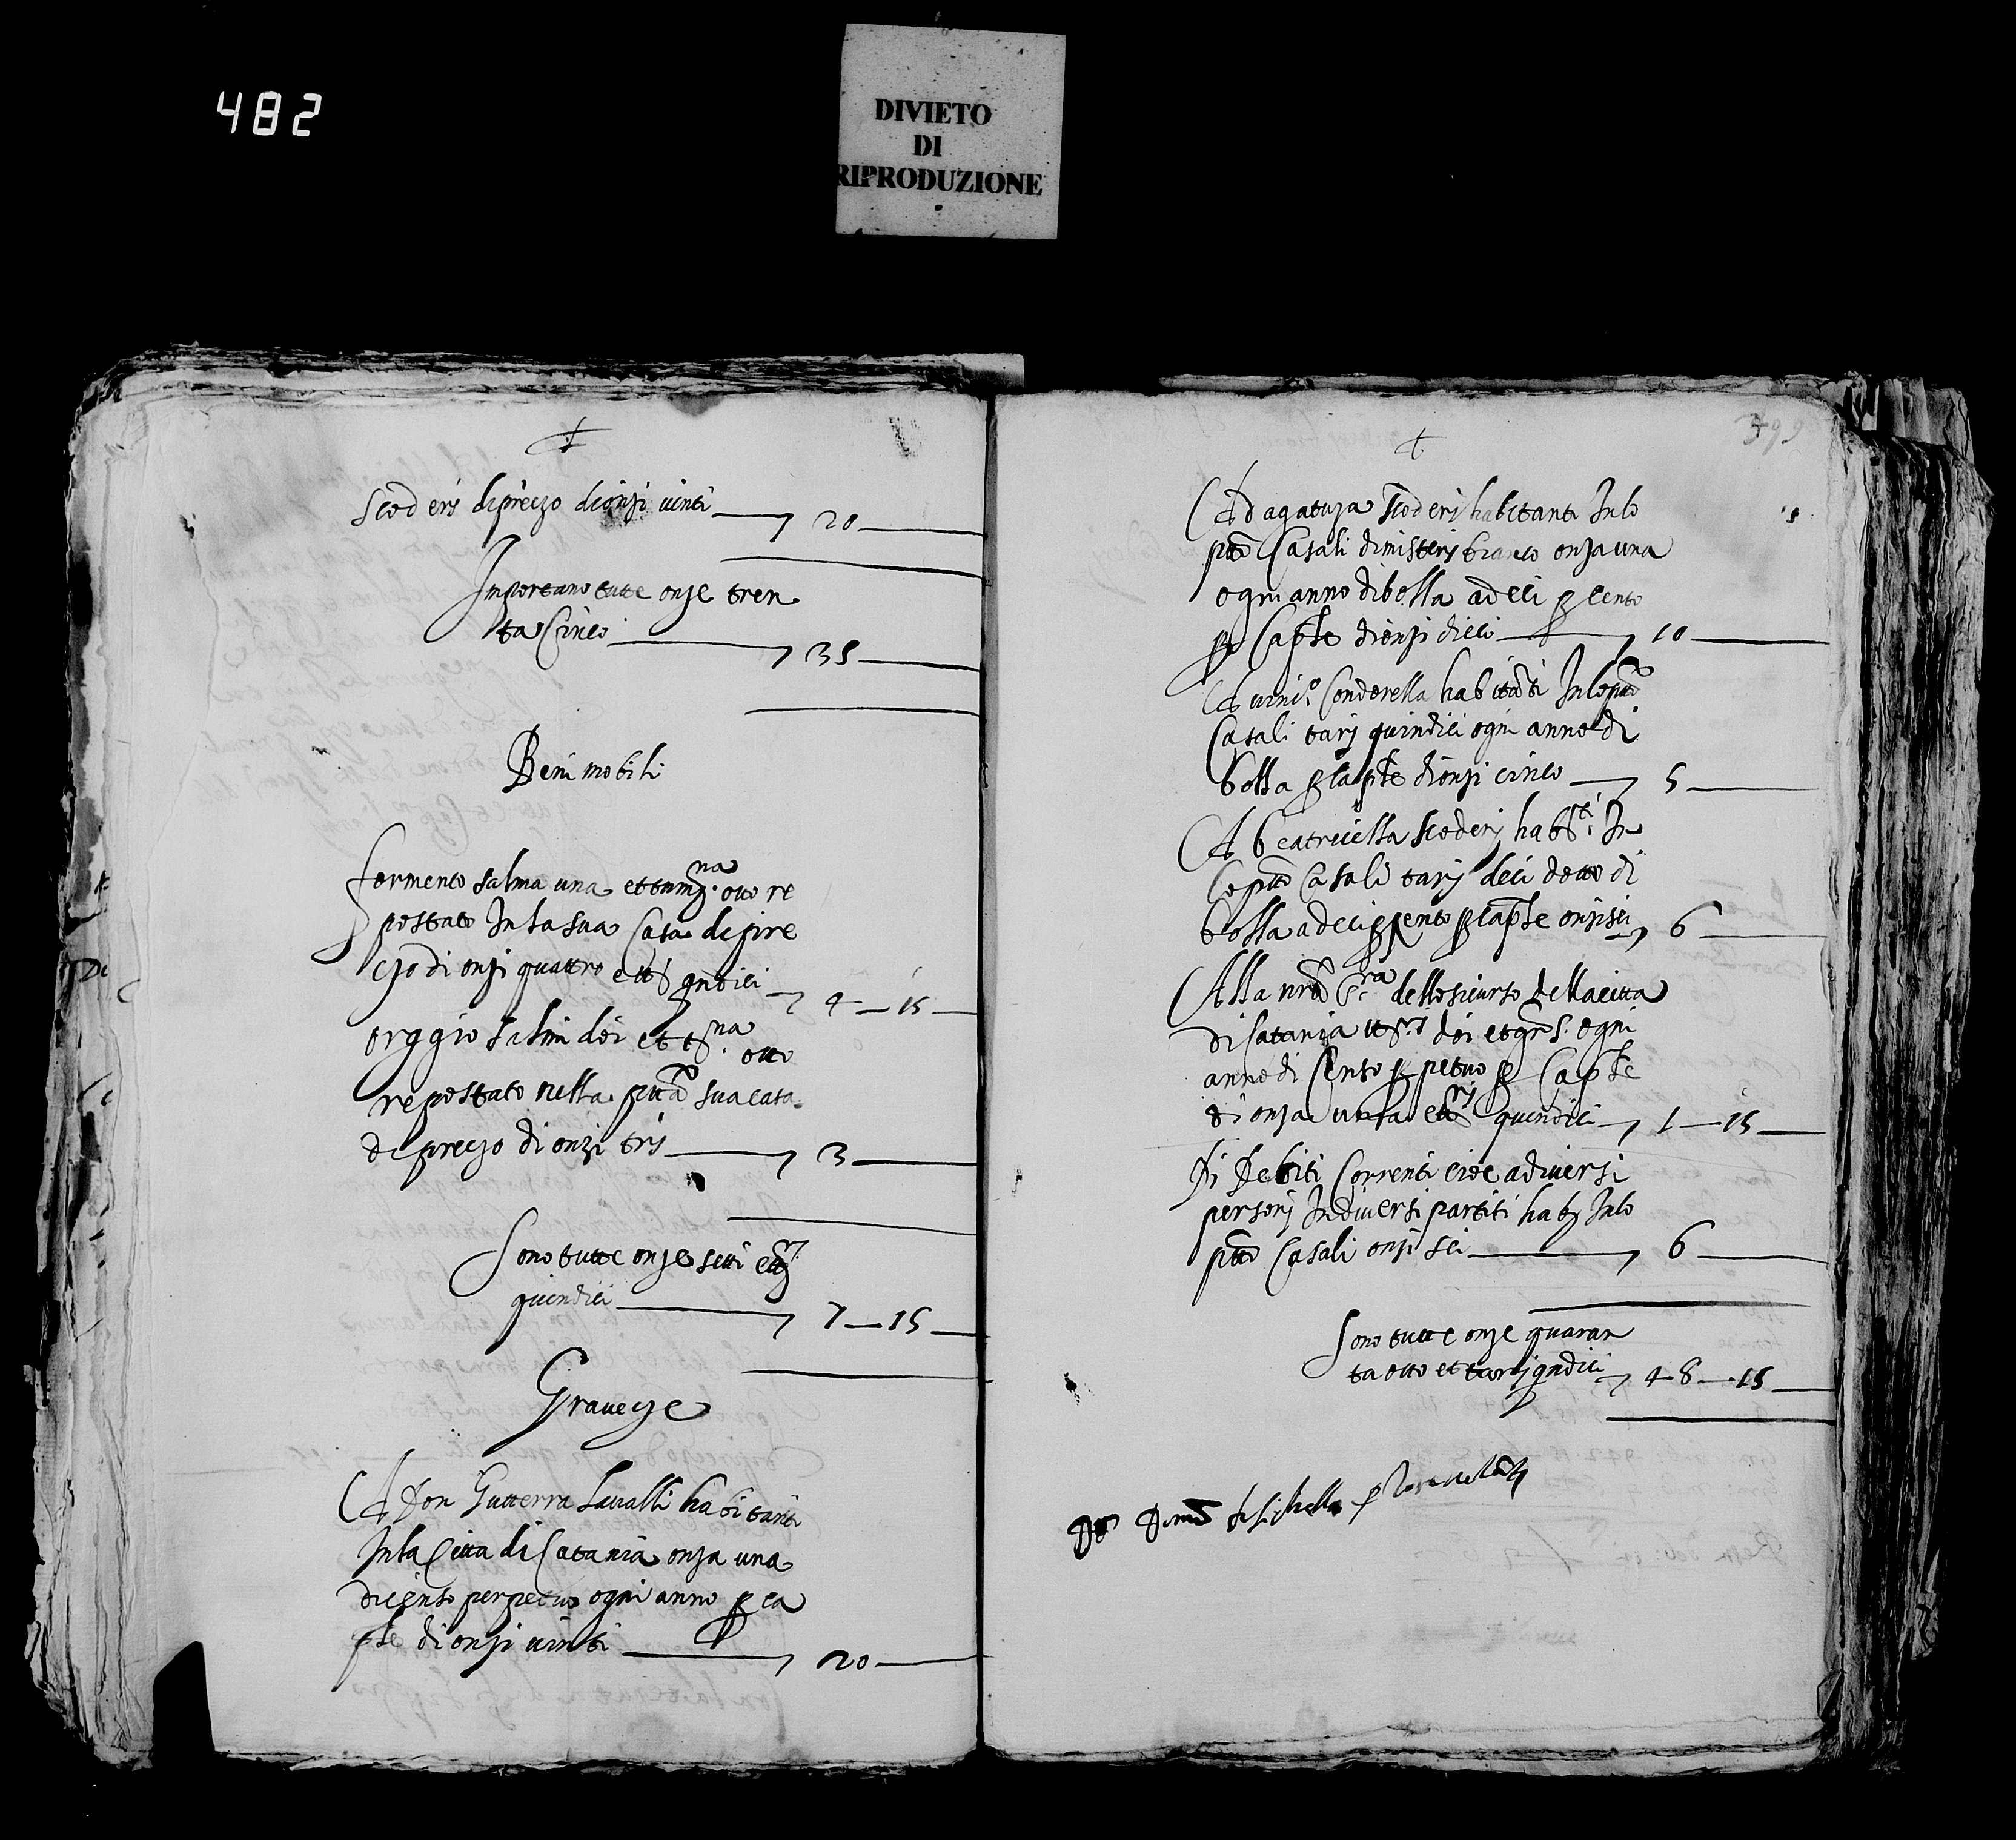 482
DIVIETO
DI
RIPRODUZIONE
scoderi di prezzo di onzi vinti 20
Importano tutte onze tren
ta Cinco 35
Beni mobili
formento salma una et tum.na otto re
postato In la sua Casa di pre
czo di onzi quattro et tt.i qndici 4 — 15
orggio salmi doi et t.na otto
repostato nella ptta sua casa
di preczo di onzi tris 3
Sono tutte onze setti et tt.i
quindici 7 — 15
Gravecze
A Don Gutterra Lavalli habitanti
In la Citta di Catania onza una
di censo perpetuo ogni anno p ca
ple di onzi vinti 20
399
Ad agatuza scoderi habitanti In lo
ptto Casali di misterj bianco onza una
ogni anno di bolla a deci p cento
p Caple di onzi dieci 10
A vinc.o Conderella habitanti In lo ptto
Casali tarj quindici ogni anno di
bolla p caple di onzi cinco 5
A beatricella scoderj hab.ti In
lo ptto Casali tarj deci dotto di
bolla a deci p cento p caple onzi sei 6
Alla nra S.ra dello sicurso della citta
di Catania tt.i doi et gr. 5. ogni
anno di Censo ppetuo p Caple
di onza una et tt.rj quindici 1 — 15
Di Debiti Correnti cioe a diversi
personj In diversi partiti hab.ti In lo
ptto Casali onzi sei 6
Sono tutte onze quaran
ta otto et tarj qndici 48 — 15